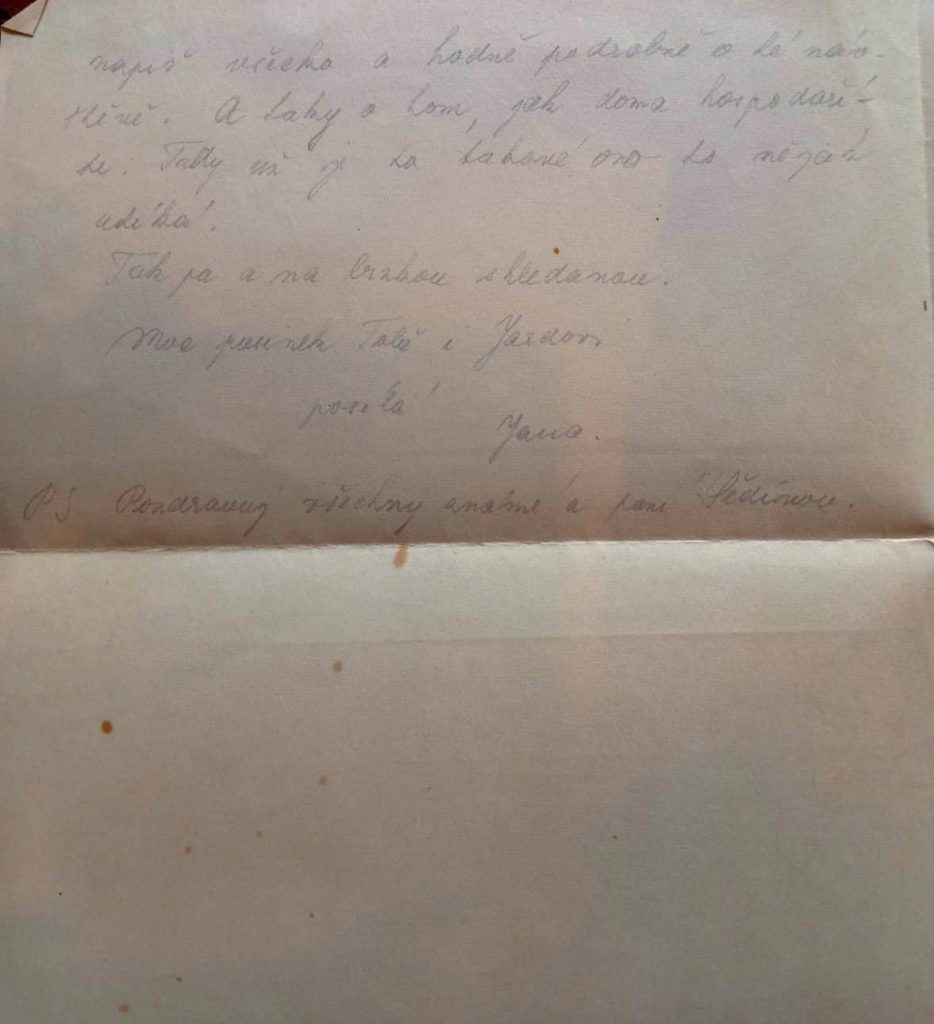 napiš všecko a hodně podrobně o té náv-
štěvě. A taky o tom, jak doma hospodaří-
te. Tady už je to takové ono to nějak
utíká.
Tak pa a na brzkou shledanou.
Moc pusinek Tobě i Jardovi
posílá
Jana.
PS Pozdravuj všechny známé a paní